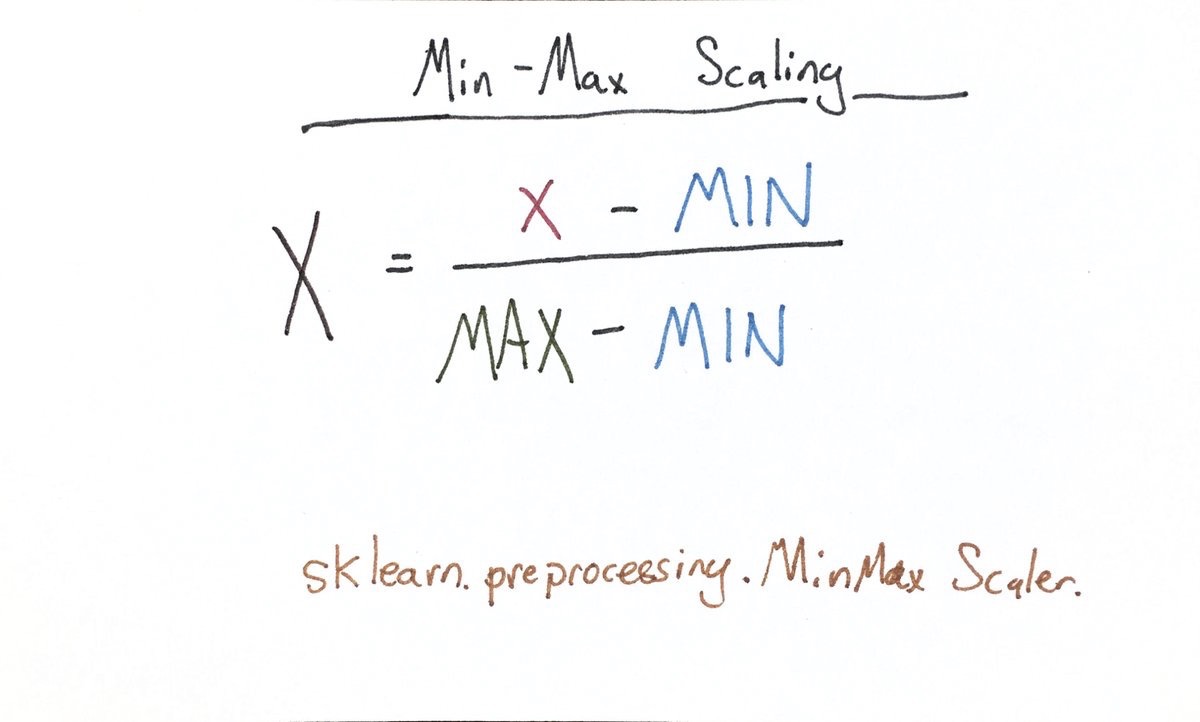 Min-Max Scaling
X = X - MIN
MAX - MIN
sklearn.preprocessing.MinMax Scaler.